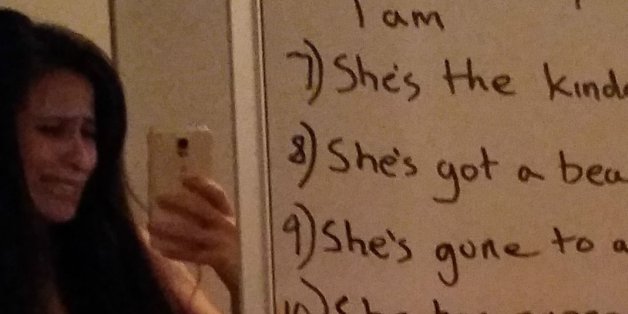 I am
7) She's the
8) She's got a
9) She's gone to a